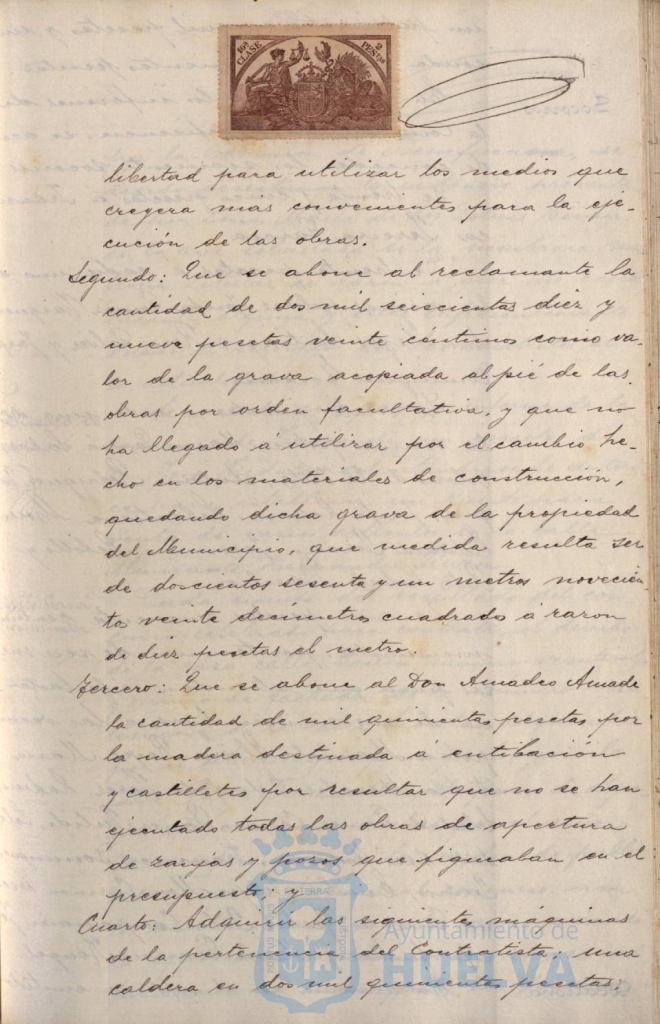 10ª CLASE
2 PESTAS
libertad para utilizar los medios que
creyera más convenientes para la eje-
cución de las obras.
Segundo: Que se abone al reclamante la
cantidad de dos mil seiscientas diez y
nueve pesetas veinte céntimos como va-
lor de la grava acopiada al pié de las
obras por orden facultativa, y que no
ha llegado á utilizar por el cambio he-
cho en los materiales de construcción,
quedando dicha grava de la propiedad
del Municipio, que medida resulta ser
de doscientos sesenta y un metros novecien
tos veinte decímetros cuadrado á razon
de diez pesetas el metro.
Tercero: Que se abone al Don Amadeo Amade
la cantidad de mil quinientas pesetas por
la madera destinada á entibación
y castilletes por resultar que no se han
ejecutado todas las obras de apertura
de zanjas y pozos que figuraban en el
presupuesto; y
Cuarto: Adquirir las siguientes máquinas
de la pertenencia del Contratista; una
caldera en dos mil quinientas pesetas;
Ayuntamiento de
HUELVA